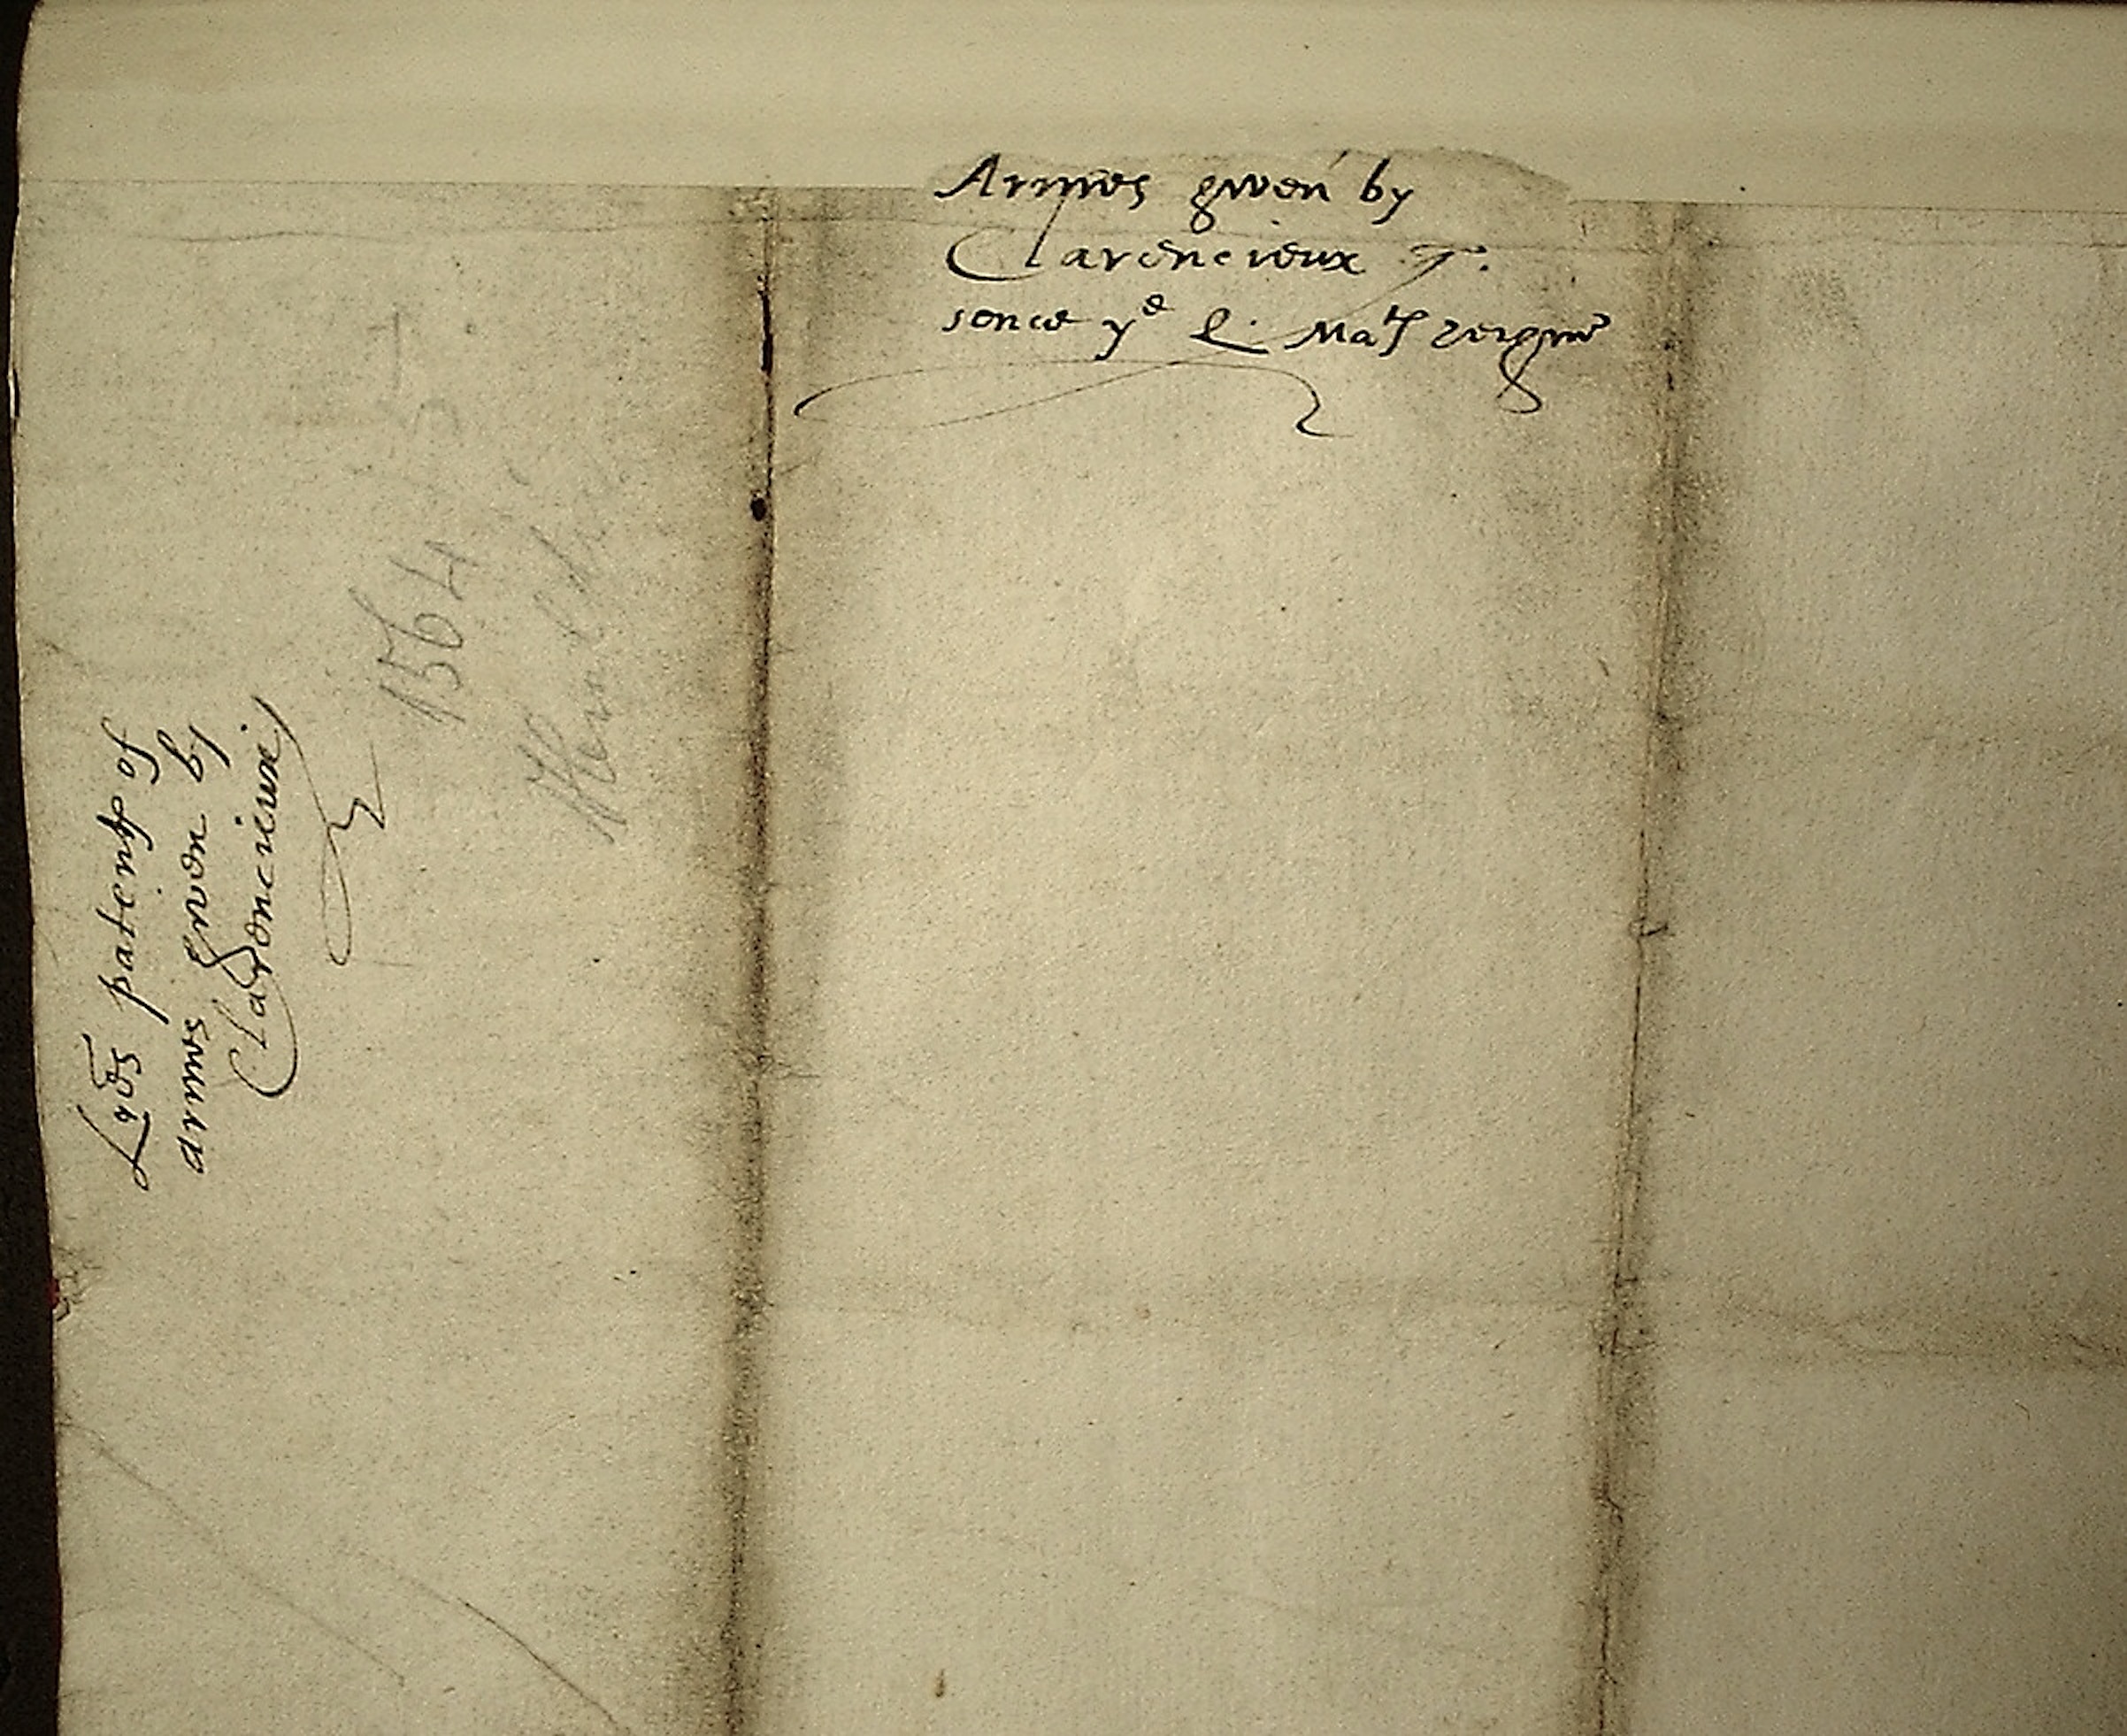 Armes given by
Clarencieux
sence yᵉ Q. Maᵗˢ reigne
patents of
armes given by
Clarencieux
1564